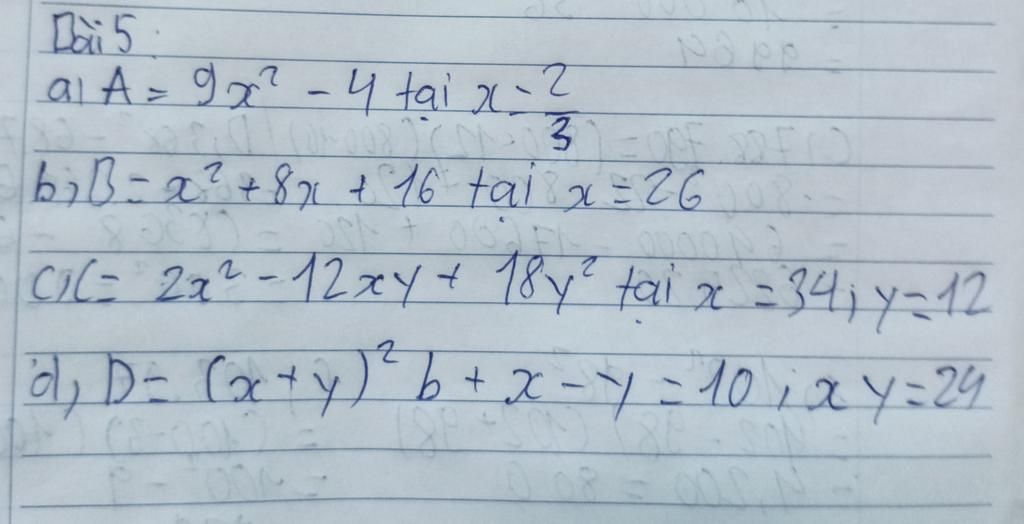 Bài 5:
a) A = 9x² - 4 tại x = 2/3
b, B = x² + 8x + 16 tại x = 26
c, C = 2x² - 12xy + 18y² tại x = 34; y = 12
d, D = (x + y)² b + x - y = 10; xy = 24